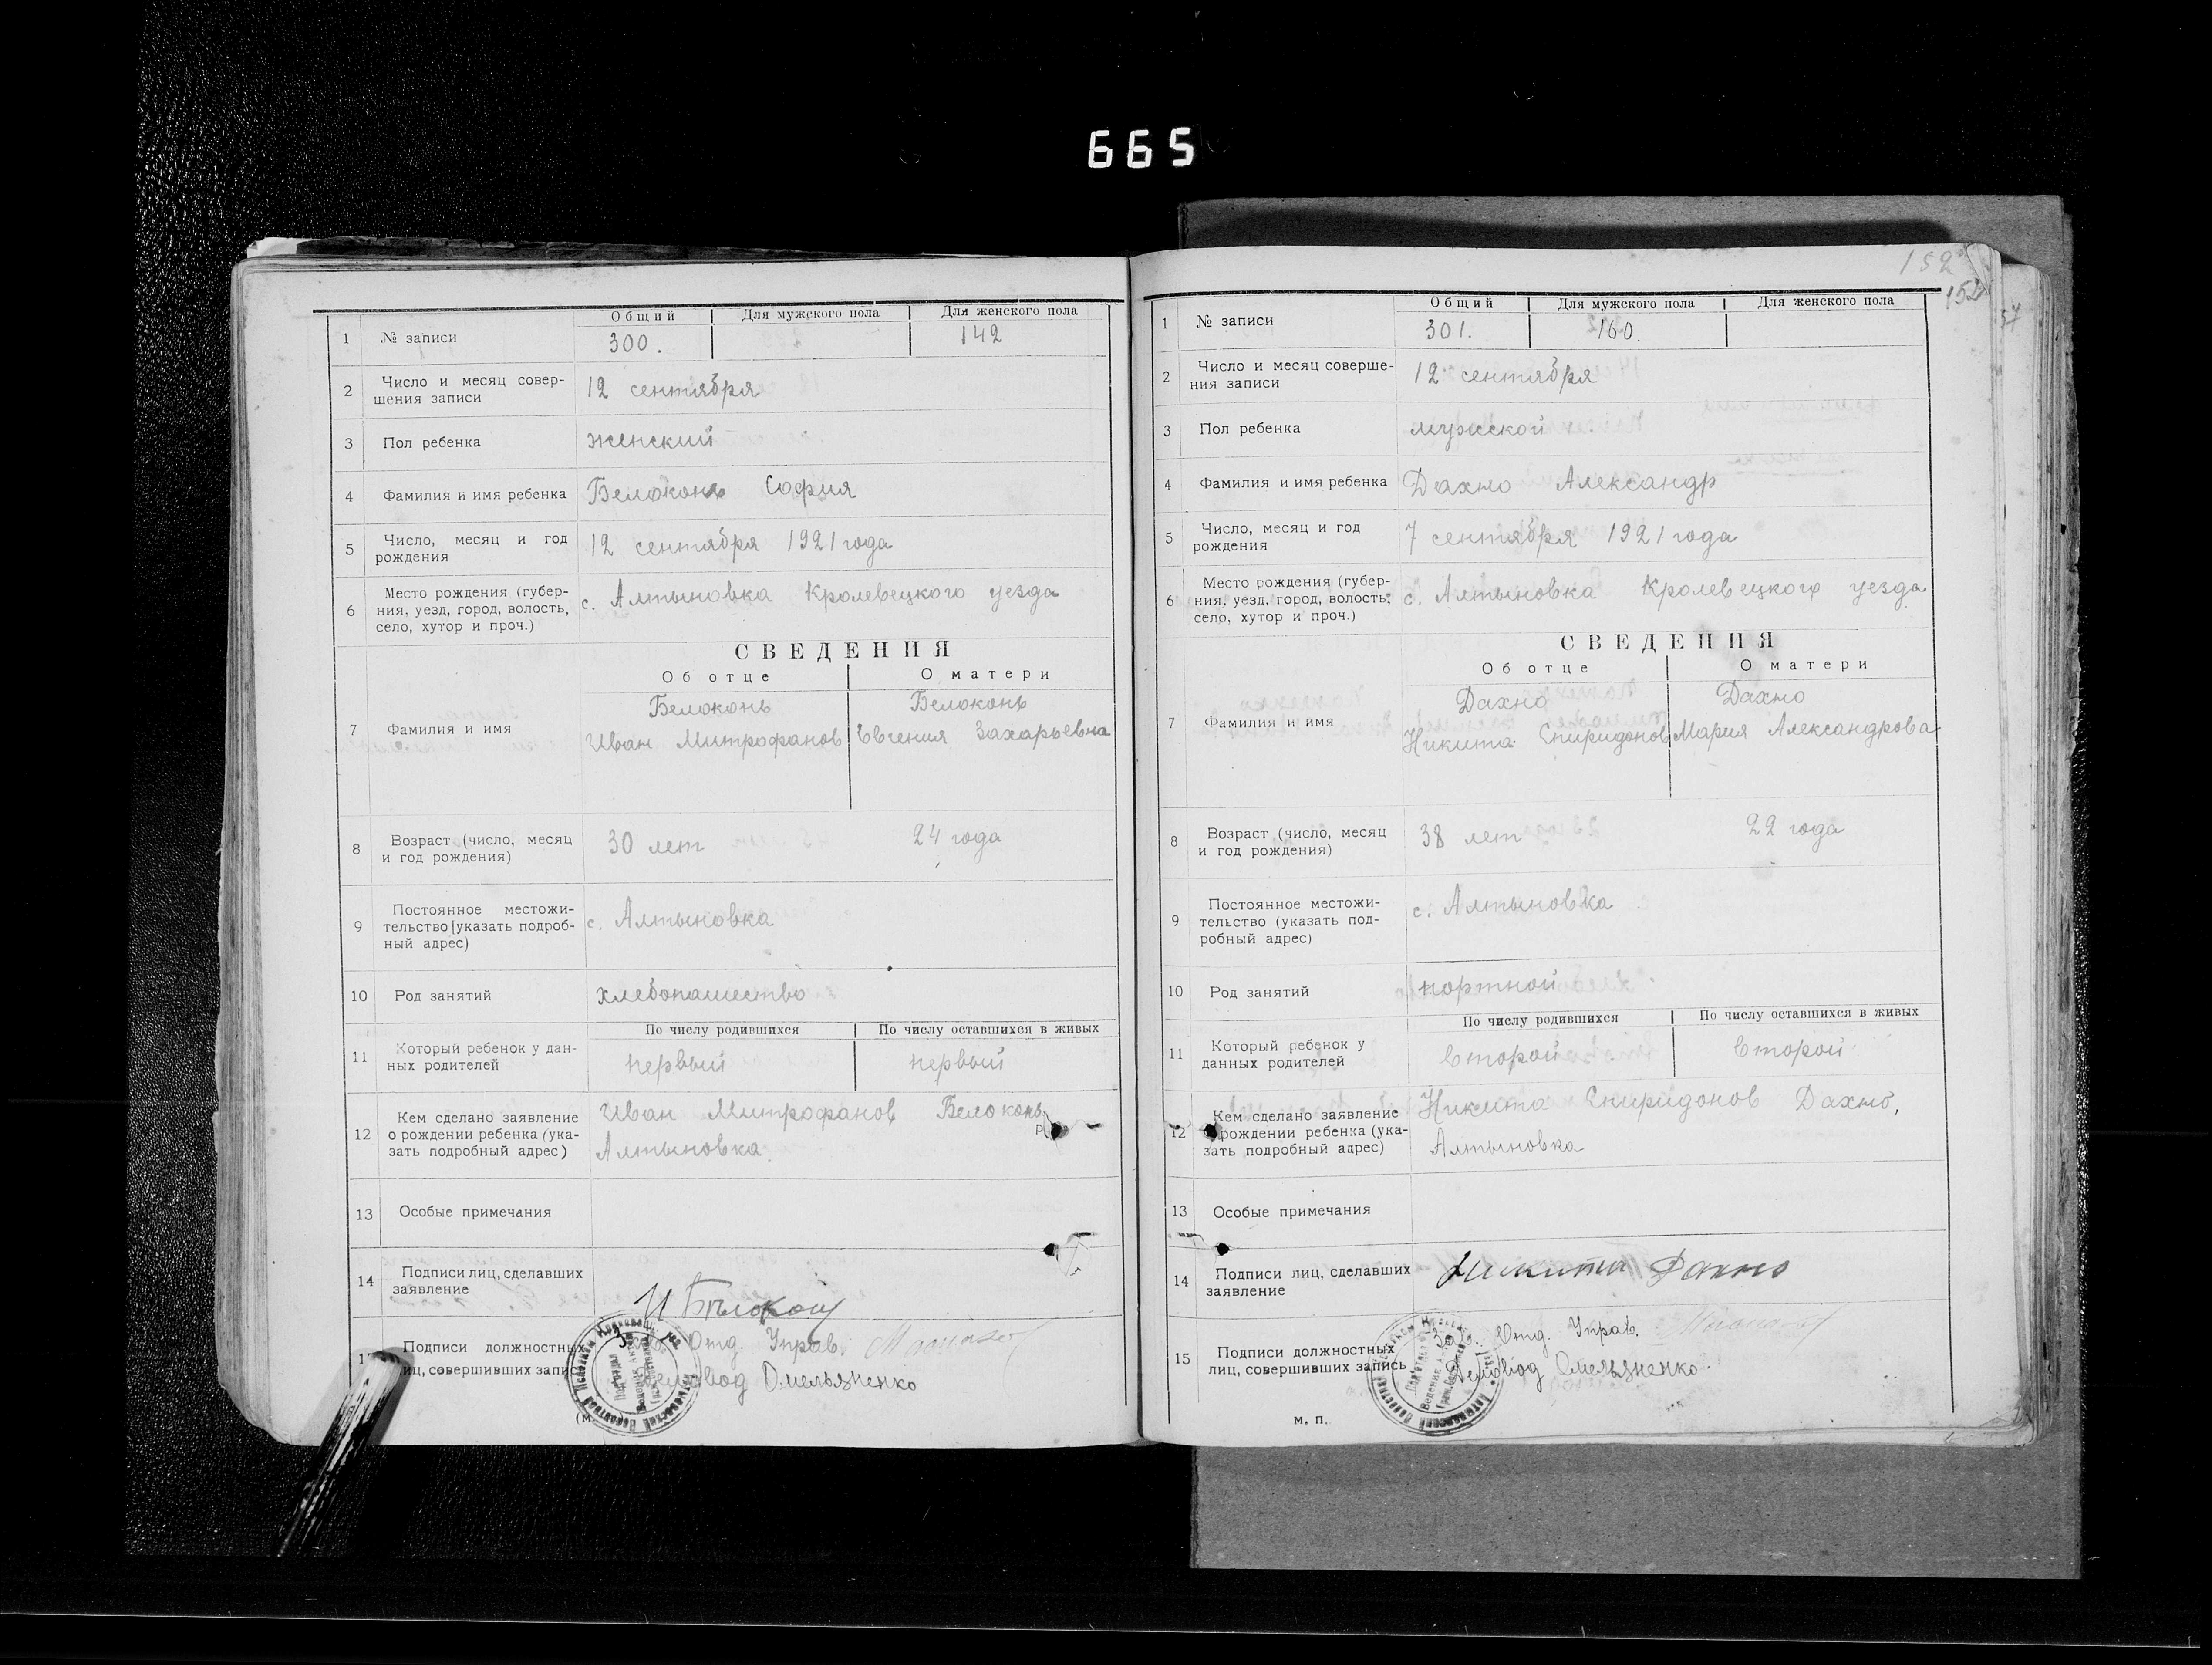 665
Общий Для мужского пола Для женского пола
1 № записи 300. 142
2 Число и месяц совер-
шения записи 12 сентября
3 Пол ребенка женский
4 Фамилия и имя ребенка Белоконь София
5 Число, месяц и год
рождения 12 сентября 1921 года
6 Место рождения (губер-
ния, уезд, город, волость,
село, хутор и проч.) с. Алтыновка Кролевецкого уезда
СВЕДЕНИЯ
Об отце О матери
7 Фамилия и имя
Белоконь Белоконь
Иван Митрофанов Евгения Захарьевна
8 Возраст (число, месяц
и год рождения) 30 лет 24 года
9 Постоянное местожи-
тельство (указать подроб-
ный адрес) с. Алтыновка
10 Род занятий хлебопашество
По числу родившихся По числу оставшихся в живых
11 Который ребенок у дан-
ных родителей первый первый
12 Кем сделано заявление
о рождении ребенка (ука-
зать подробный адрес)
Иван Митрофанов Белоконь
Алтыновка
13 Особые примечания
14 Подписи лиц, сделавших
заявление
И Бѣлоконь
Подписи должностных
лиц, совершивших запись
Зав. Отд. Управ.
Деловод Омельяненко
(м.
152
152
57
Общий Для мужского пола Для женского пола
1 № записи 301. 160.
2 Число и месяц соверше-
ния записи 12 сентября
3 Пол ребенка мужской
4 Фамилия и имя ребенка Дахно Александр
5 Число, месяц и год
рождения 7 сентября 1921 года
6 Место рождения (губер-
ния, уезд, город, волость,
село, хутор и проч.) с. Алтыновка Кролевецкого уезда
СВЕДЕНИЯ
Об отце О матери
7 Фамилия и имя
Дахно Дахно
Никита Спиридонов Мария Александрова
8 Возраст (число, месяц
и год рождения) 38 лет 22 года
9 Постоянное местожи-
тельство (указать под-
робный адрес) с. Алтыновка
10 Род занятий портной
По числу родившихся По числу оставшихся в живых
11 Который ребенок у
данных родителей второй второй
12 Кем сделано заявление
о рождении ребенка (ука-
зать подробный адрес)
Никита Спиридонов Дахно,
Алтыновка
13 Особые примечания
14 Подписи лиц, сделавших
заявление
Никита Дахно
15 Подписи должностных
лиц, совершивших запись
Зав. Отд. Управ.
Деловод Омельяненко
м. п.